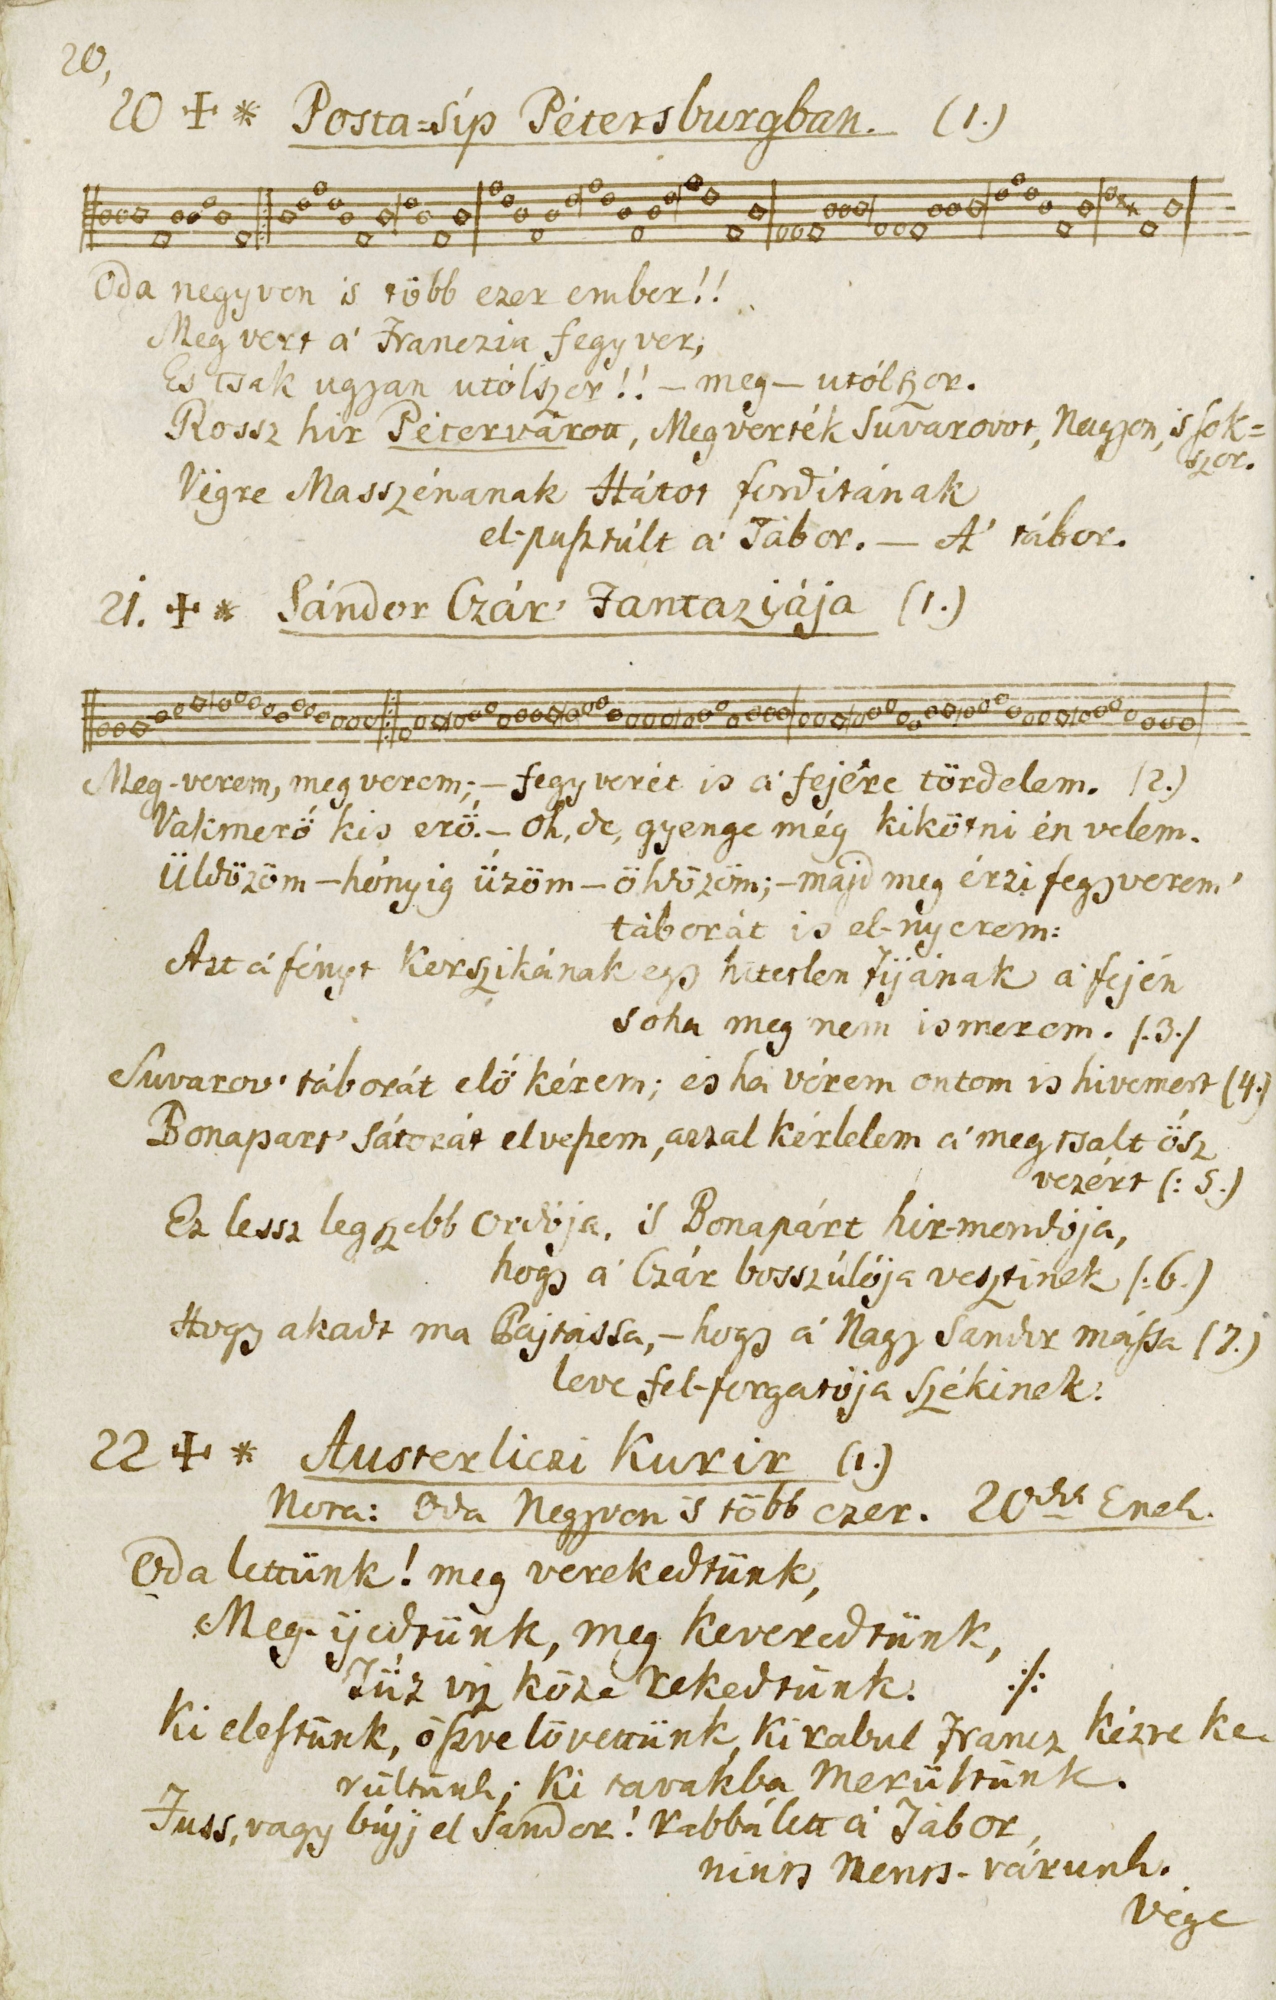 20,
20 ✢ * Posta=síp Pétersburgban. (1.)
Oda negyven is több ezer ember!!
Meg vert a' Franczia fegyver;
Es tsak ugyan utólszor!! — meg — utólszor.
Rossz hír Pétervárott, Megverték Suvarovot, Nagyon, is sok=
szor.
Végre Masszénanak Hátot fordítának
el-pusztúlt a' Tábor. — A' tábor.
21. ✢ * Sándor Czár' Fantaziája (1.)
Meg-verem, meg verem; — fegyverét is a' fejére tördelem. (2.)
Vakmerő kis erő. — Oh, de, gyenge még kikötni én velem.
Üldözöm — hónyig űzöm — öldözöm; — majd meg érzi fegyverem'
táborát is el-nyerem:
Azt a' fényt Kerszikának egy hitetlen fijának a' fején
soha meg nem ismerem. (:3.)
Suvarov' táborát elő kérem; és ha vérem ontom is hivemért (4.)
Bonapart' sátorát elveszem, azzal kérlelem a' meg tsalt ősz
vezért (:5.)
Ez lessz legszebb Ordója, is Bonapárt hir-mondója,
hogy a' Czár bosszúlója vesztinek (:6.)
Hogy akadt ma Pajtássa, — hogy a' Nagy Sandor mássa (7.)
leve fel-forgatója székinek.
22 ✢ * Austerliczi Kurir (1.)
Nota: Oda Negyven is több ezer. 20dik Enek.
Oda lettünk! meg verekedtünk,
Meg-ijedtünk, meg keveredtünk,
Tűz víz köze rekedtünk. :/:
Ki elestünk, öszve lövettünk, Ki rabul Francz kézre ke-
rültünk; Ki tavakba merültünk.
Fuss, vagy bújj el Sandor! rabbá lett a' Tábor,
nints ments-várunk.
Vége